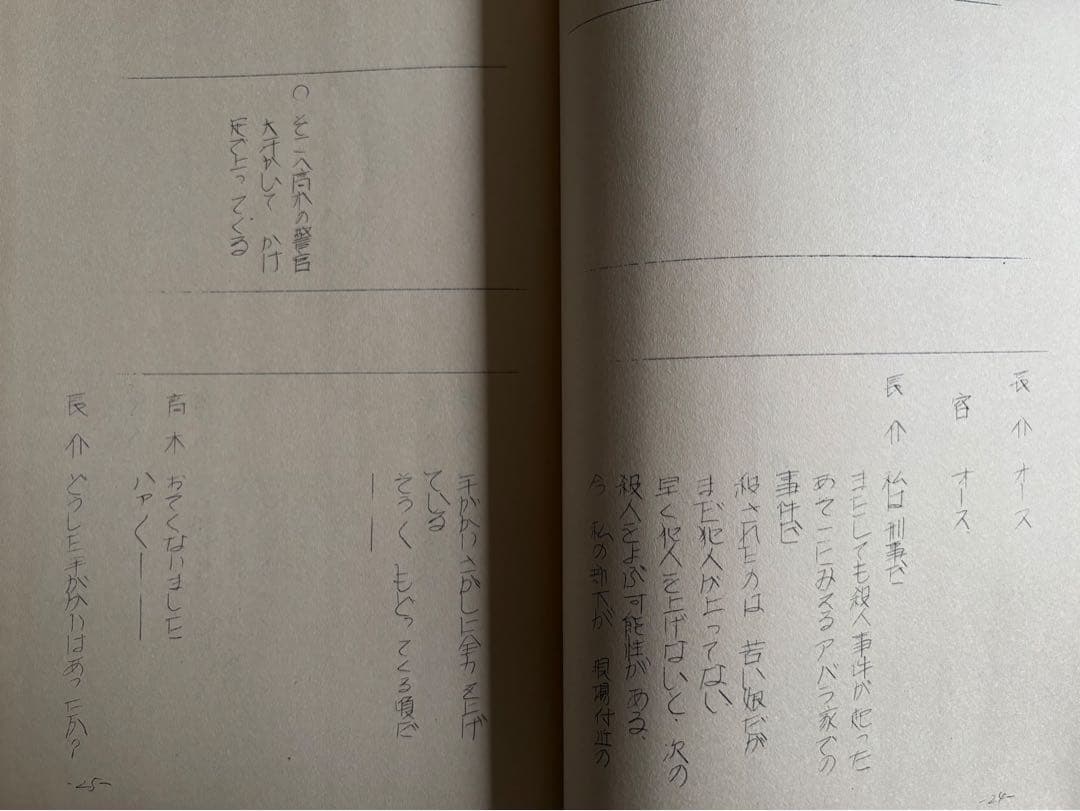 長介 オース
客 オース
長介 私は刑事だ
またしても殺人事件が起った
あそこにみえるアバラ家での
事件だ
殺されたのは 若い娘だが
まだ犯人が上ってない
早く犯人を上げないと、次の
殺人をよぶ可能性がある、
今 私の部下が 現場付近の
-24-
手がかりさがしに全力を上げ
ている
そろ〱もどってくる頃だ
――
○そこへ高木の警官
大汗かいて かけ
足で上ってくる
高木 おそくなりました
ハァ〱――――
長介 どうした手がかりはあったか?
-25-